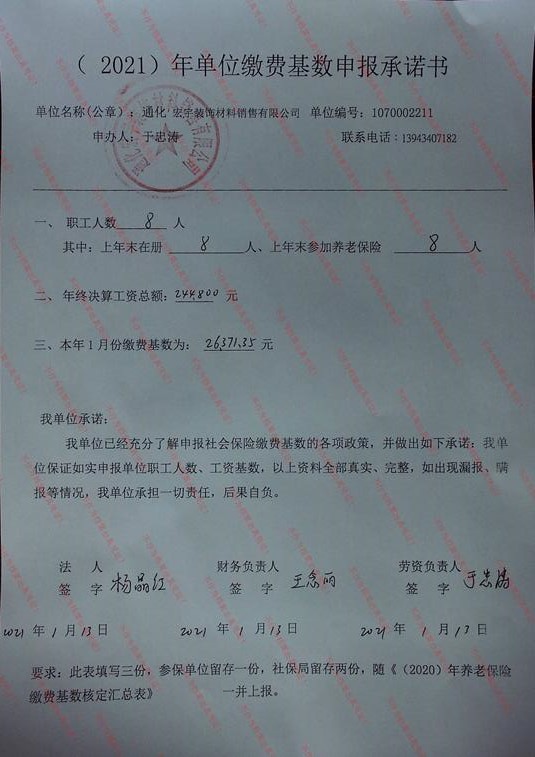 （ 2021）年单位缴费基数申报承诺书
单位名称(公章)：通化 宏宇装饰材料销售有限公司 单位编号：1070002211
申办人：于忠涛 联系电话：13943407182
一、 职工人数 8 人
其中：上年末在册 8 人、上年末参加养老保险 8 人
二、年终决算工资总额：244,800 元
三、本年1月份缴费基数为： 26,371.35 元
我单位承诺：
我单位已经充分了解申报社会保险缴费基数的各项政策，并做出如下承诺：我单
位保证如实申报单位职工人数、工资基数，以上资料全部真实、完整，如出现漏报、瞒
报等情况，我单位承担一切责任，后果自负。
法 人 财务负责人 劳资负责人
签 字 杨晶红 签 字 王念丽 签 字 于忠涛
2021 年 1 月 13 日 2021 年 1 月 13 日 2021 年 1 月 13 日
要求：此表填写三份，参保单位留存一份，社保局留存两份，随《（2020）年养老保险
缴费基数核定汇总表》 一并上报。